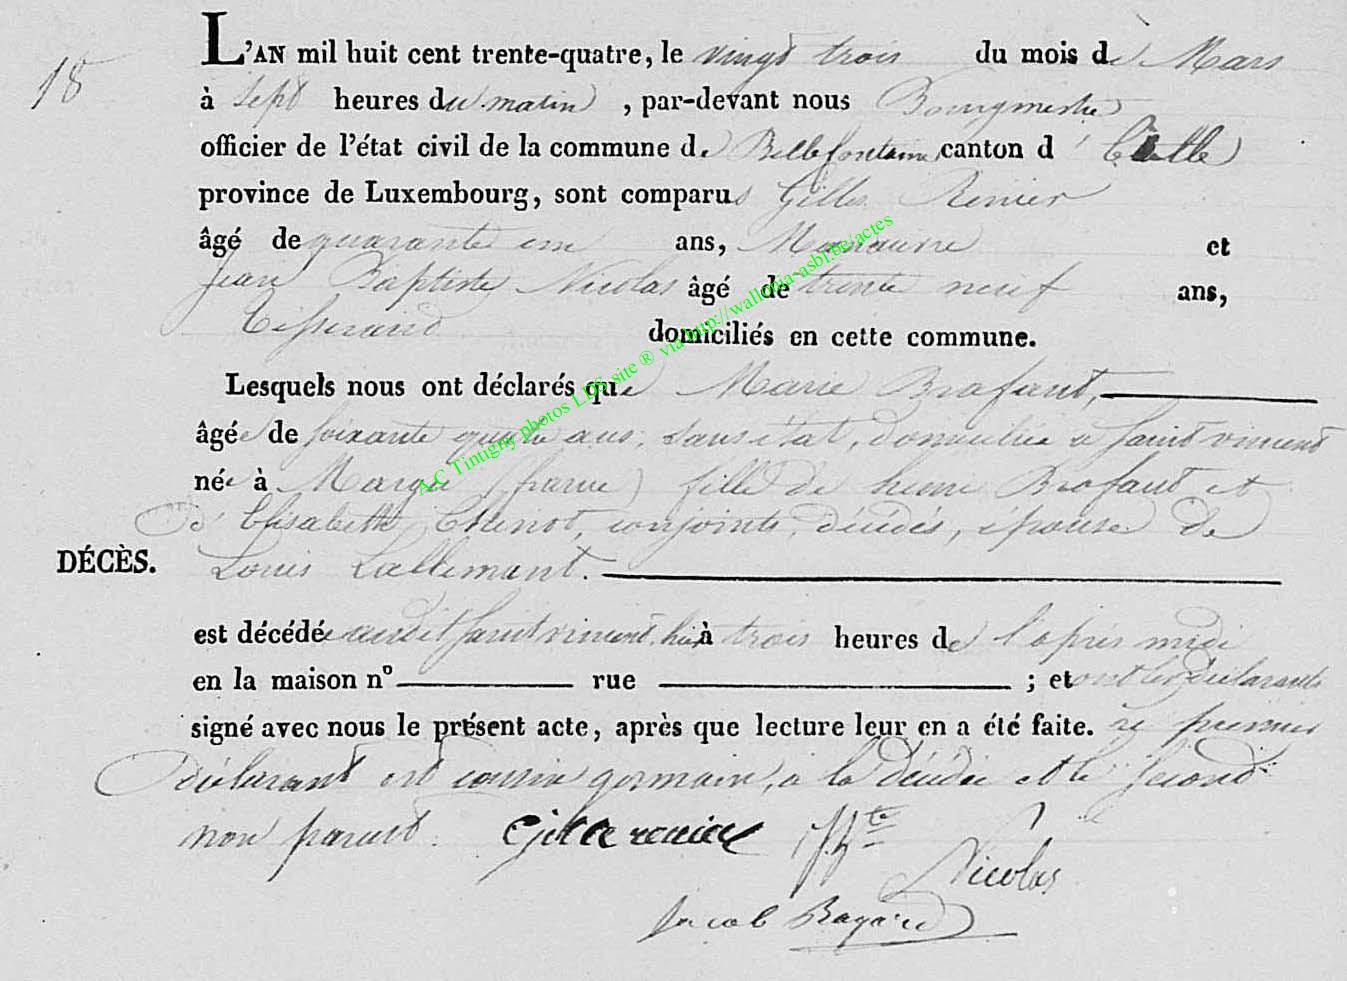 18
L'AN mil huit cent trente-quatre, le vingt trois du mois de Mars
à Sept heures du matin, par-devant nous Bourgmestre
officier de l'état civil de la commune de Bellefontaine canton d'
province de Luxembourg, sont comparus Gilles Renier
âgé de quarante un ans, Manœuvre et
Jean Baptiste Nicolas âgé de trente neuf ans,
Tisserand domiciliés en cette commune.
Lesquels nous ont déclarés que Marie Brafaut,
âgée de soixante quatre ans, sans état, domiciliée à saint vincent
née à Margu (france) fille de henri Brofaut et
d'Elisabeth Thenot, conjoints, décédés, épouse de
DÉCÈS. Louis Lallemant.
est décédée audit saint vincent hier à trois heures de l'après midi
en la maison nº rue ; et ont les déclarants
signé avec nous le présent acte, après que lecture leur en a été faite. le premier
déclarant est cousin germain, a la décédée et le second
non parent. Gille renier JBte
Nicolas
Jacob Bayard
A.C Tintigny photos LDS site ® via http://wallonia-asbl.be/actes